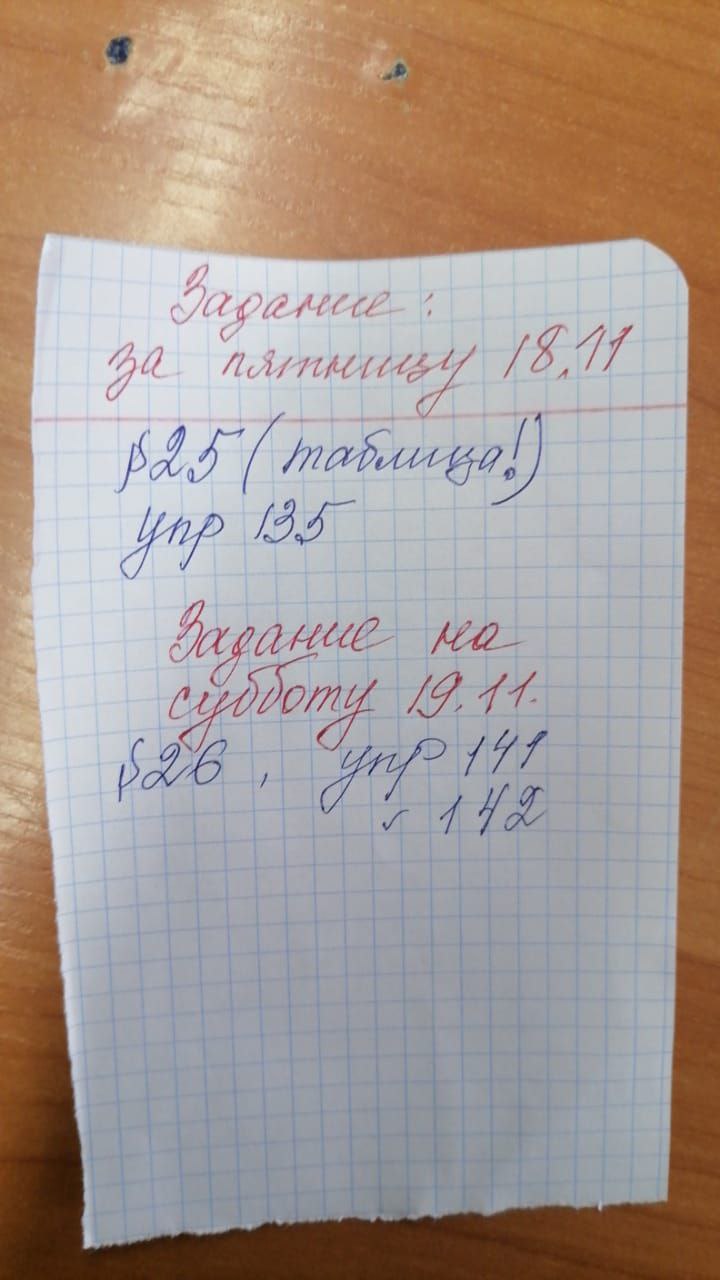 Задание:
за пятницу 18.11
§25 (таблица!)
упр 135
Задание на
субботу 19.11.
§26, упр 141
✓ 142